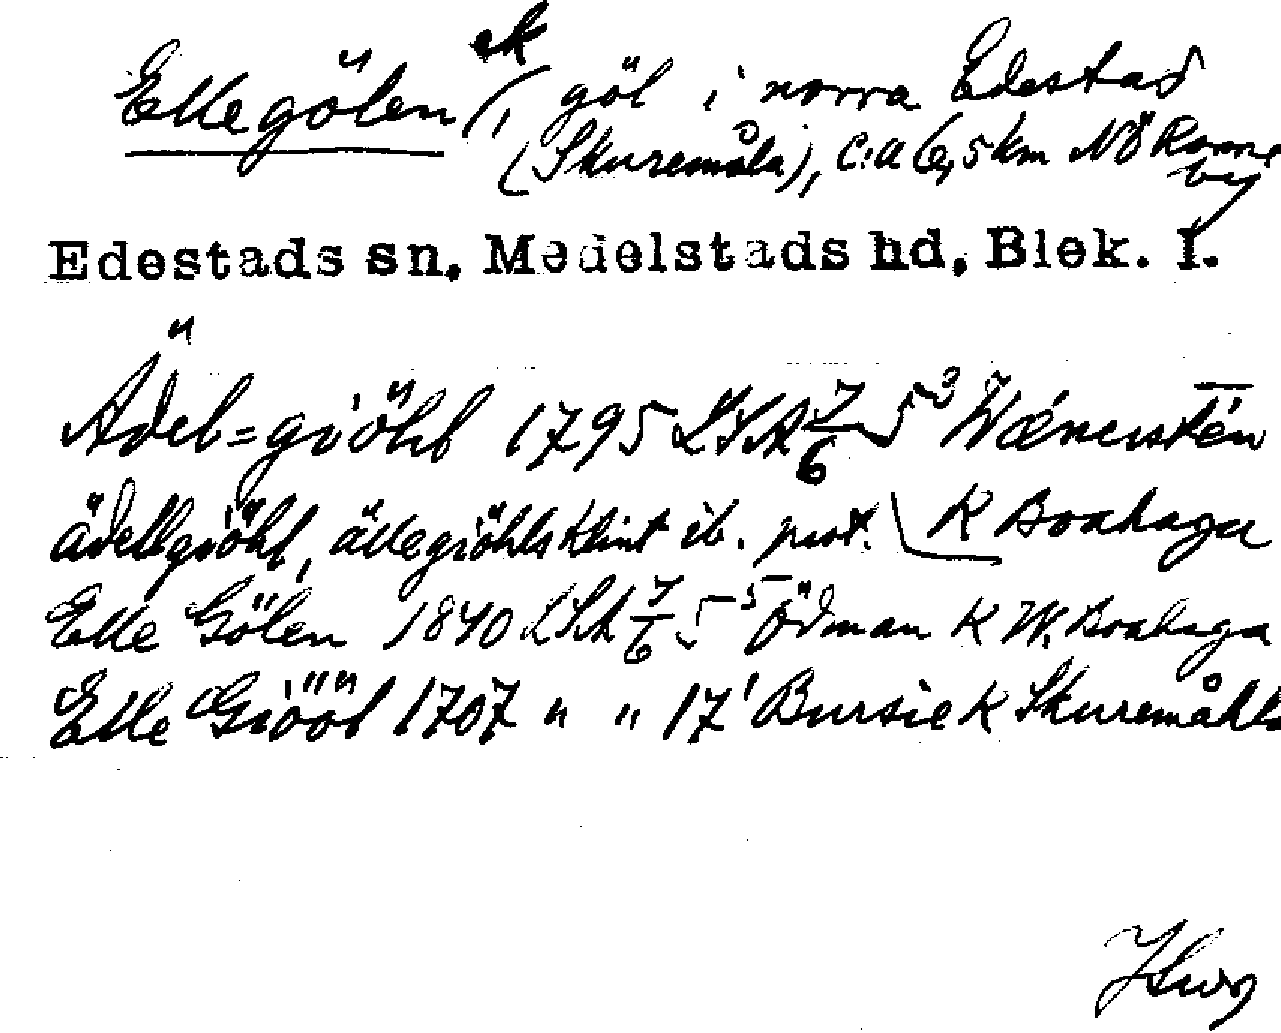 Ellegölen ek, göl i norra Edestad
(Skuremåla), c:a 6,5 km NÖ Ronneby
Edestads sn, Medelstads hd, Blek. l.
Ädel=giöhl 1795 LSA 7/6 5³ Wænerstén
ädellgiöhl, ällegiöhls klint ib. prot. K Boahaga
Elle Gölen 1840 LSA 7/6 5⁵ Ödman K W. Boahaga
Elle Giööl 1707 " " 17¹ Bursie K Skuremåhla